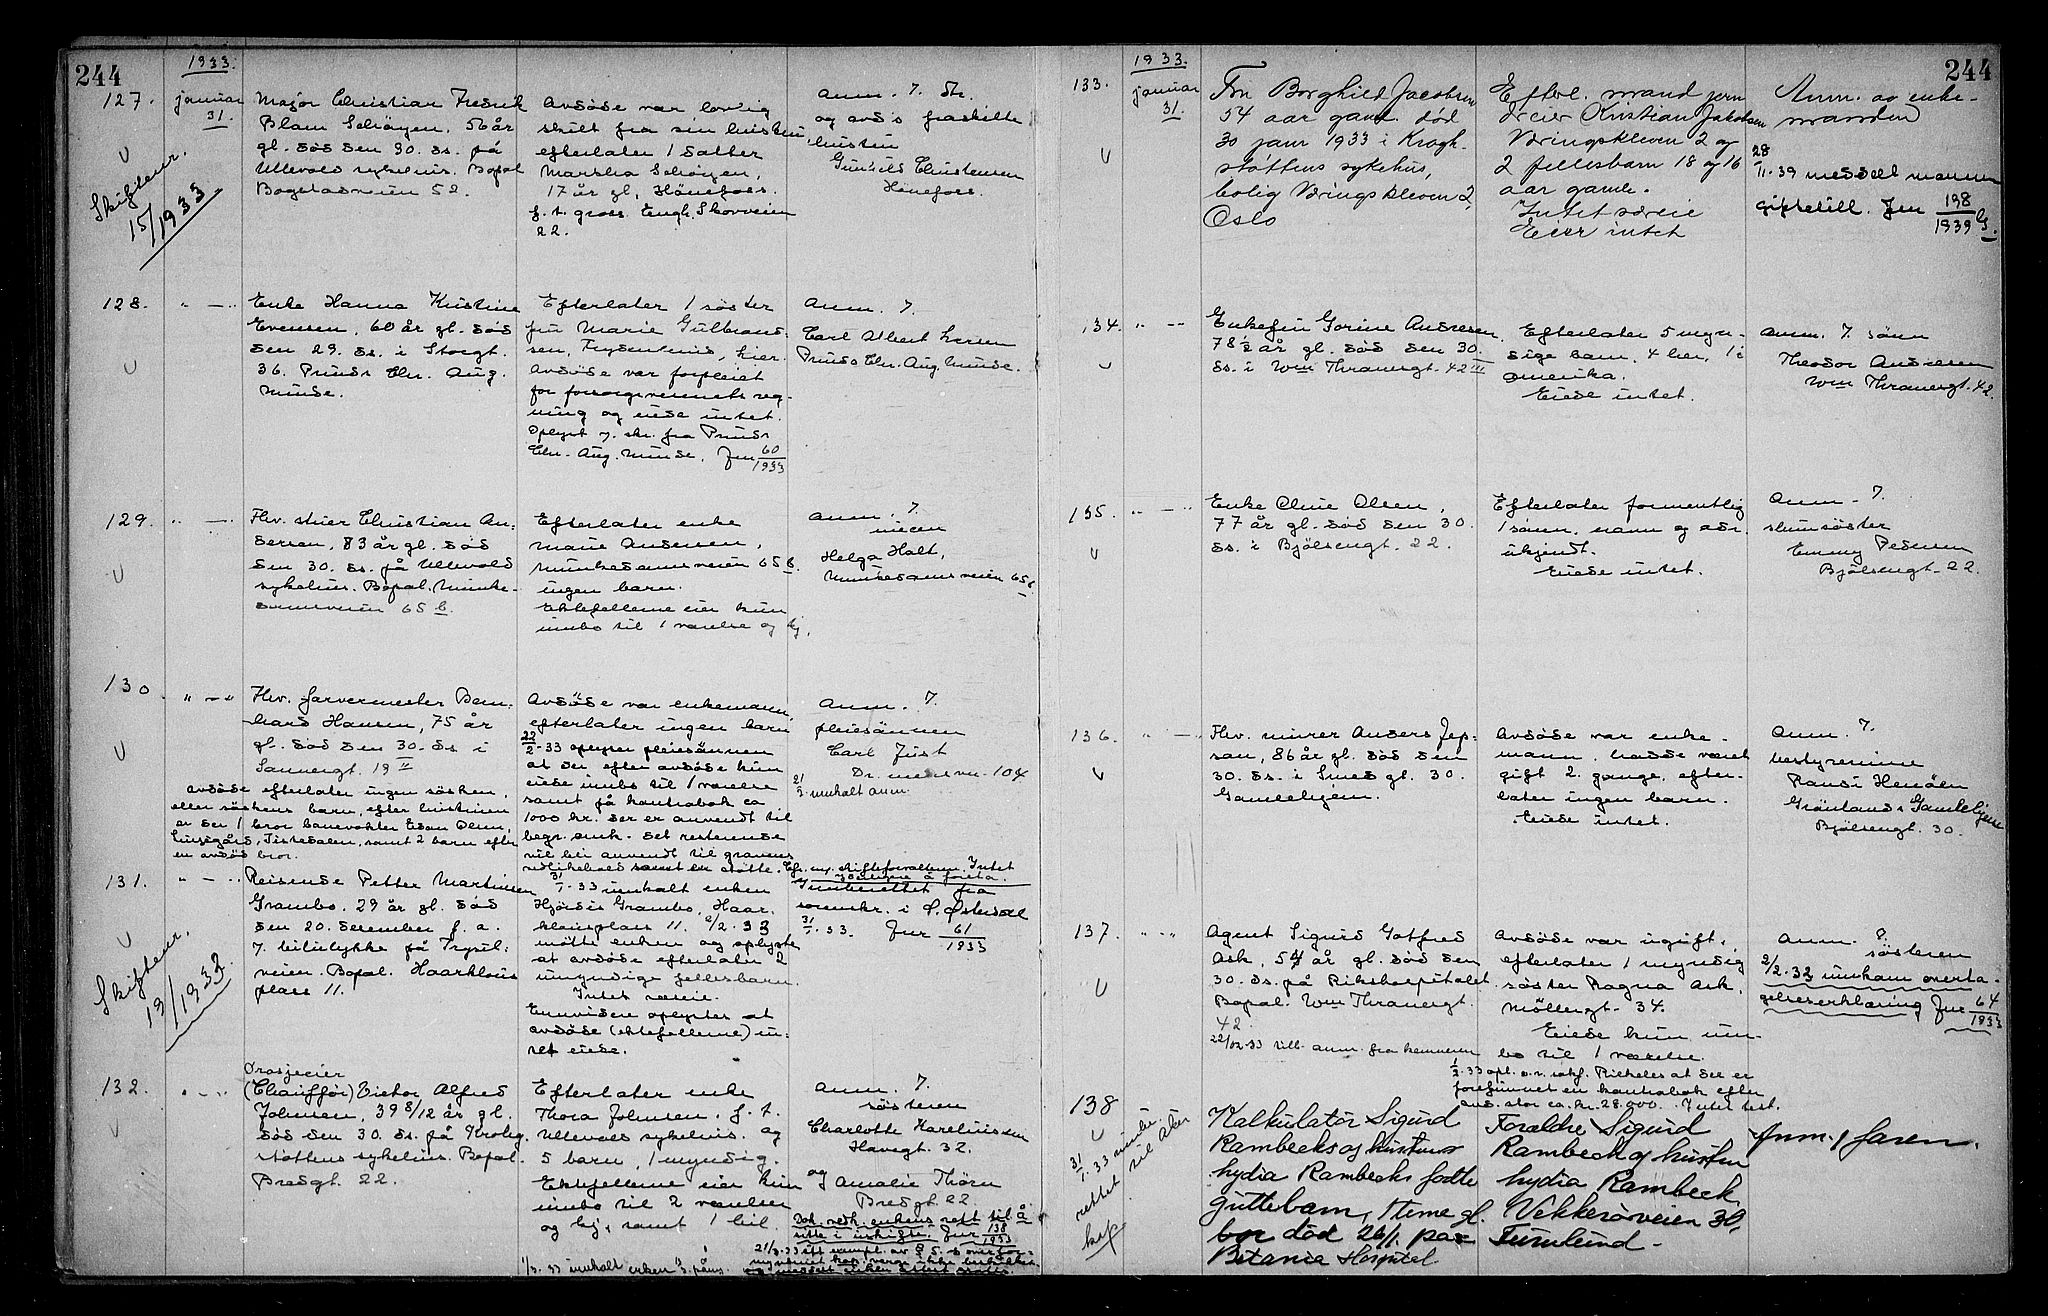 244
1933.
127.
januar
31.
Skiftevr.
15/1933
Major Christian Fredrik
Blom Schöyen, 56 år
gl. död den 30. ds. på
Ullevold sykehus. Bopæl
Bogstadveien 52.
Avdöde var lovlig
skilt fra sin hustru
efterlater 1 datter
Martha Schöyen,
17 år gl, Hönefoss.
f. t. gross. Engh. Skovveien
22.
anm. 7.
og avd's fraskilte
hustru
Gunhild Christensen
Hönefoss.
128.
Enke Hanna Kristine
Evensen, 60 år gl. död
den 29. ds. i Storgt.
36. Prinds Chr. Aug.
Minde.
Efterlater 1 söster
fru Marie Gulbrand-
sen, her.
Avdöde var forpleiet
for forsorgsvesenets reg-
ning og eiede intet.
Oplyst v. skr. fra Prinds
Chr. Aug. Minde. Jnr 60/1933
anm. 7.
Carl Albert Larsen
Prinds Chr. Aug. Minde.
129.
Fhv. Christian An-
dersen, 83 år gl. död
den 30. ds. på Ullevold
sykehus. Bopæl. Munke-
damsveien 65 b.
Efterlater enke
Marie Andersen,
Munkedamsveien 65 b.
ingen barn.
Ektefellerne eier kun
innbo til 1 værelse og kj.
anm. 7.
niecen
Helga Holt,
Munkedamsveien 65 b.
130.
Fhv. farvermester Bern-
hard Hansen, 75 år
gl. död den 30. ds. i
Sannergt. 19 II
avdöde efterlater ingen sösken,
eller söskens barn, efter hustruen
er der 1 bror banevokter Edon Olsen,
Tistedalen, samt 2 barn efter
en avdöd bror.
Avdöde var enkemann,
efterlater ingen barn
22/2-33 oplyser pleiesönnen
at der efter avdöde kun
eiede innbo til 1 værelse
samt på kontrabok ca
1000 kr. der er anvendt til
begr. omk. det resterende
vil bli anvendt til gravens
vedlikehold samt en stötte.
anm. 7.
pleiesönnen
Carl Just
Dr. vn. 104
innkalt anm.
Intet
å foreta.
131.
Skiftevr.
19/1933
Reisende Petter Martinsen
Grambo. 29 år gl. död
den 20. desember f. a.
v. bilulykke på Trysil-
veien. Bopæl. Haarklous
plass 11.
31/1-33 innkalt enken
Hjördis Grambo, Haar-
klousplass 11. 2/2-33
mötte enken og oplyste
at avdöde efterlater 2
umyndige fellesbarn.
Intet særeie.
Enn videre oplystes at
avdöde (ektefellerne) in-
tet eiede.
Innberettet fra
sorenskr. i Ö. Österdal
31/1-33. Jnr 61/1933
132.
Drosjeeier
(Chaufför) Victor Alfred
Johnsen, 39 8/12 år gl.
död den 30. ds. på Krohg-
stöttens sykehus. Bopæl.
Bredgt. 22.
Efterlater enke
Thora Johnsen, f. t.
Ullevold sykehus. og
5 barn, 1 myndig.
Ektefellerne eier kun
innbo til 2 værelser
og kj, samt 1 bil.
anm. 7.
søsteren
Charlotte
Havegt. 32.
og Amalie Thörn
Bredgt. 22.
enkens rett til å
sitte i uskifte. Jnr 138/1933
1/3. 33 innkalt enken
244
1933.
133.
januar
31.
Fru Borghild Jacobsen
54 aar gaml. död
30 janr 1933 i Krogh-
støttens sykehus,
bolig Væringskleven 2,
Oslo
Efterl. mand jern
dreier Kristian Jakobsen
Væringskleven 2 og
2 fellesbarn 18 og 16
aar gamle.
Intet særeie
Eier intet
Anm. av enke-
manden
28/11-39 meddelt mannen
giftetill. Jnr 198/1939 G.
134.
Enkefru Gorine Andresen
78 1/2 år gl. död den 30
ds. i Wm Thranesgt. 42 III
Efterlater 5 myn-
dige barn, 4 her, 1 i
Amerika.
Eiede intet.
anm. 7. sönn
Theodor Andresen
Wm Thranesgt. 42.
135.
Enke Oline Olsen,
77 år gl. död den 30
ds. i Bjölsengt. 22.
Efterlater formentlig
1 sönn, navn og adr.
ukjendt.
Eiede intet.
anm. 7.
slumsöster
Emmy Pedersen
Bjölsengt. 22.
136.
Fhv. murer Anders Jep-
san, 86 år gl. död den
30. ds. i gt. 30.
Gamlehjem.
Avdöde var enke-
mann, hadde været
gift 2. gange, efter-
later ingen barn.
Eiede intet.
anm. 7.
bestyrerinne
Randi
Grönlands Gamlehjem
Bjölsengt. 30.
137.
Agent Sigurd Gotfred
Ask, 54 år gl. död den
30. ds. på Rikshospitalet
Bopæl. Wm Thranesgt.
42.
till. anm. fra kemneren
Avdöde var ugift,
efterlater 1 myndig
söster Ragna Ask,
Möllergt. 34.
Eiede kun inn-
bo til 1 værelse.
at der er
forefunnet en kontrabok efter
avd. stor ca. kr. 28.000. Intet test.
anm. 7.
søsteren
2/2-33 innkom overta-
gelseserklæring Jnr 64/1933
138
31/1-33 innbe-
rettet til Aker
Kalkulatør Sigurd
Rambecks og hustru
Lydia Rambecks fødte
guttebarn, 1 time gl.
bor død 26/1. paa
Betania Hospital
Forældre Sigurd
Rambeck og hustru
Lydia Rambeck
Vekkerøveien 30,
Furulund -
Anm. faren.